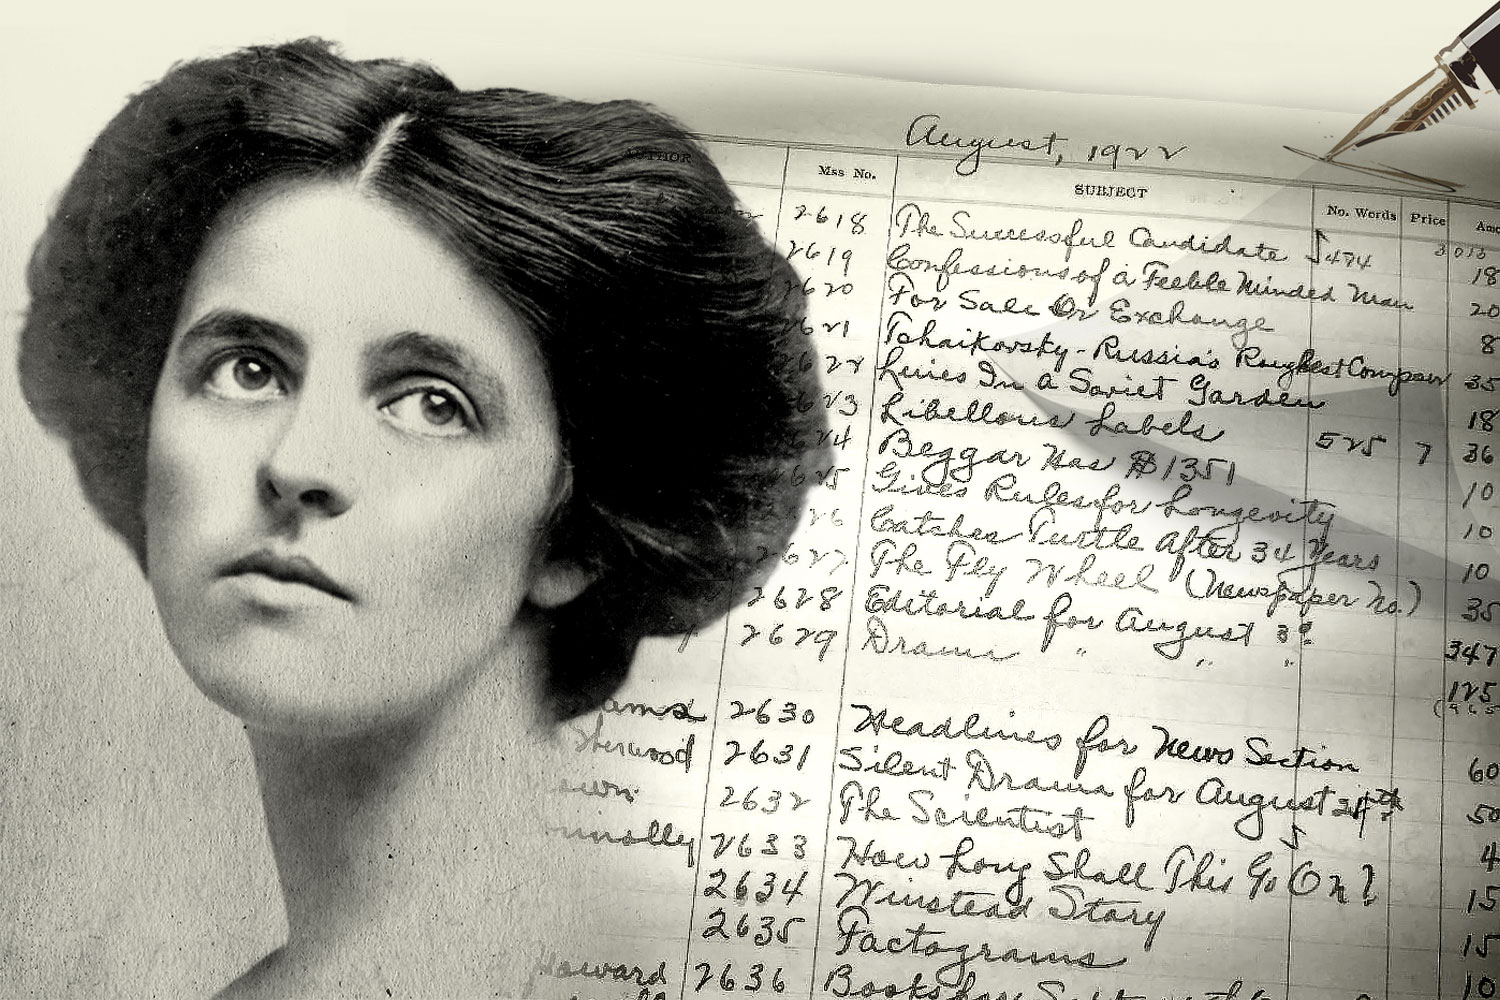 August, 1922
AUTHOR Mss No. SUBJECT No. Words Price
2618 The Successful Candidate 474
2619 Confessions of a Feeble Minded Man 18
2620 For Sale Or Exchange 20
2621 Tchaikovsky - Russia's Roughest Composer 8
2622 Lines In a Soviet Garden 35
2623 Libellous Labels 18
2624 Beggar Has $1351 525 7 36
2625 Gives Rules for Longevity 10
2626 Catches Turtle After 34 Years 10
2627 The Fly Wheel (Newspaper No.) 10
2628 Editorial for August 3º 35
2629 Drama " " " 347
125
2630 Headlines for News Section 60
Sherwood 2631 Silent Drama for August 24th 50
2632 The Scientist 4
2633 How Long Shall This Go On? 15
2634 Winstead Story 15
2635 Factograms 10
2636 Books